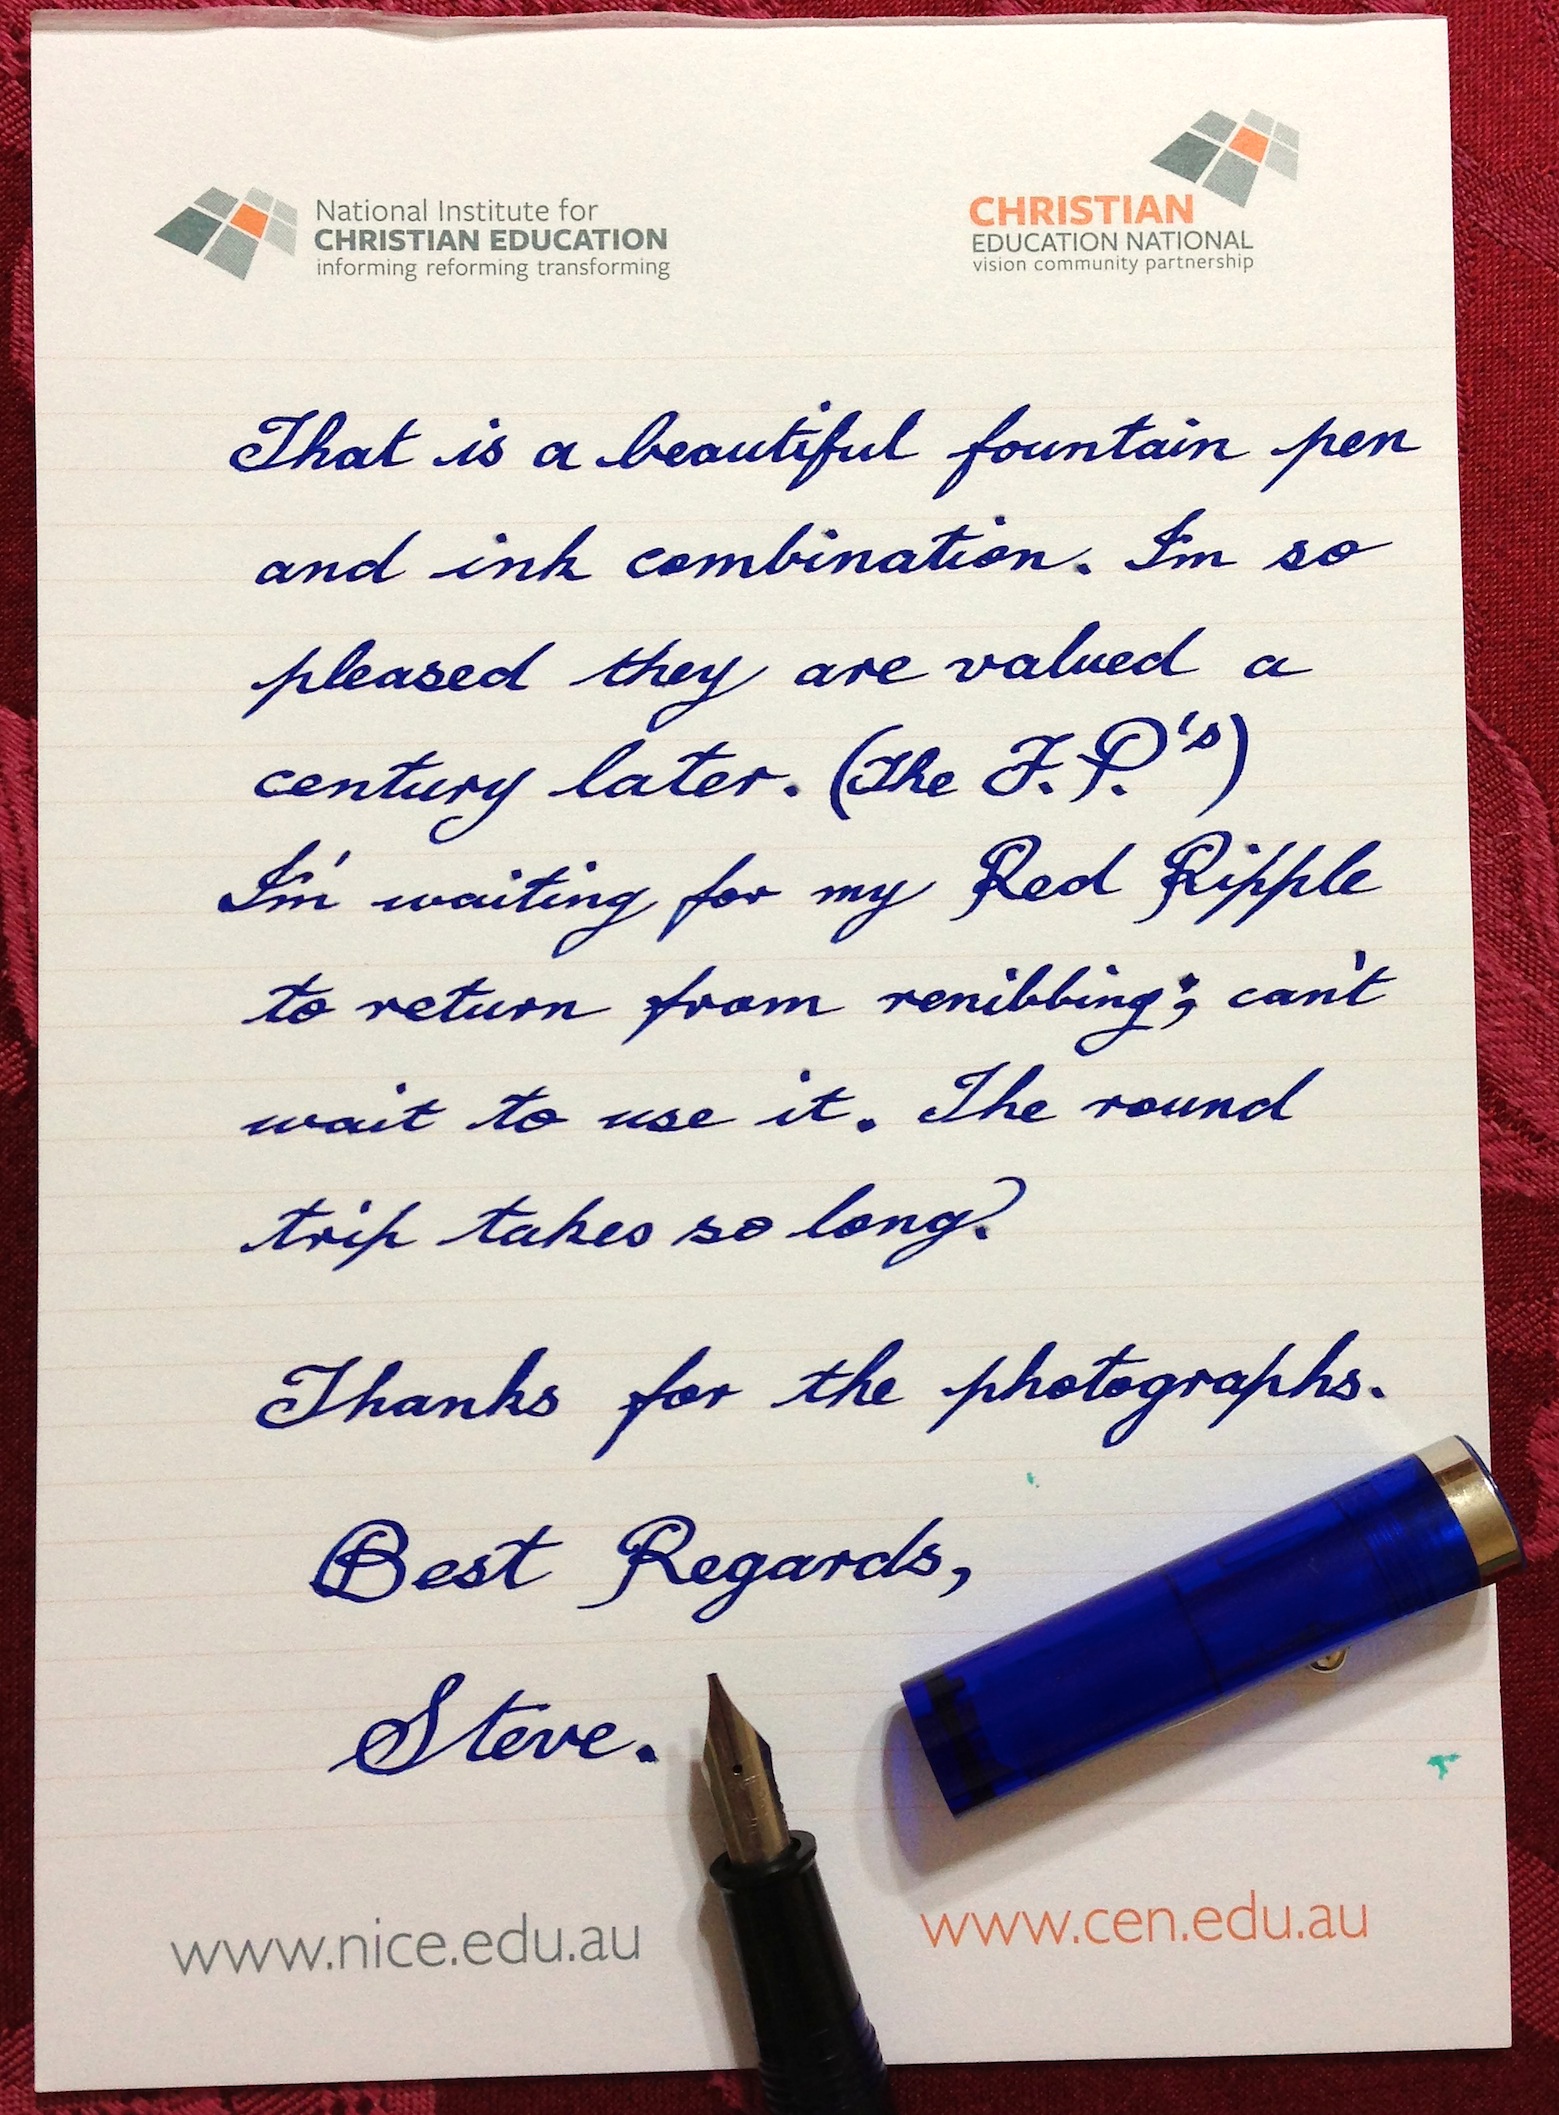 National Institute for
CHRISTIAN EDUCATION
informing reforming transforming
CHRISTIAN
EDUCATION NATIONAL
vision community partnership
That is a beautiful fountain pen
and ink combination. I'm so
pleased they are valued a
century later. (The F.P.'s)
I'm waiting for my Red Ripple
to return from renibbing; can't
wait to use it. The round
trip takes so long.
Thanks for the photographs.
Best Regards,
Steve.
www.nice.edu.au
www.cen.edu.au